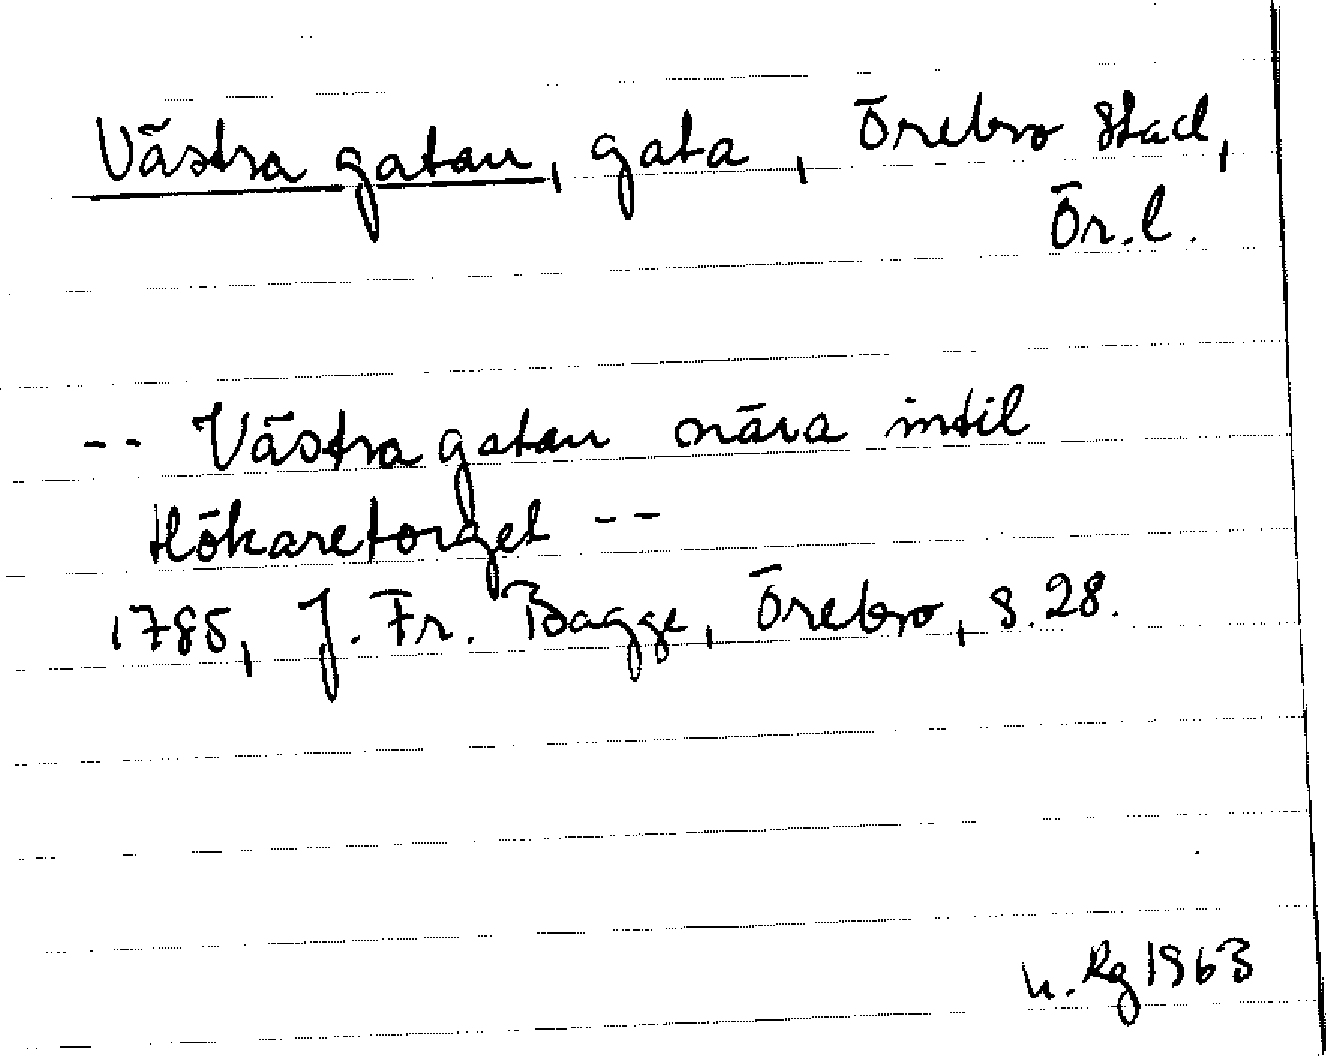 Västra gatan, gata, Örebro stad,
Ör.l.
-- Västra gatan nära intil
Hökaretorget --
1785, J. Fr. Bagge, Örebro, s. 28.
u. Rg 1963